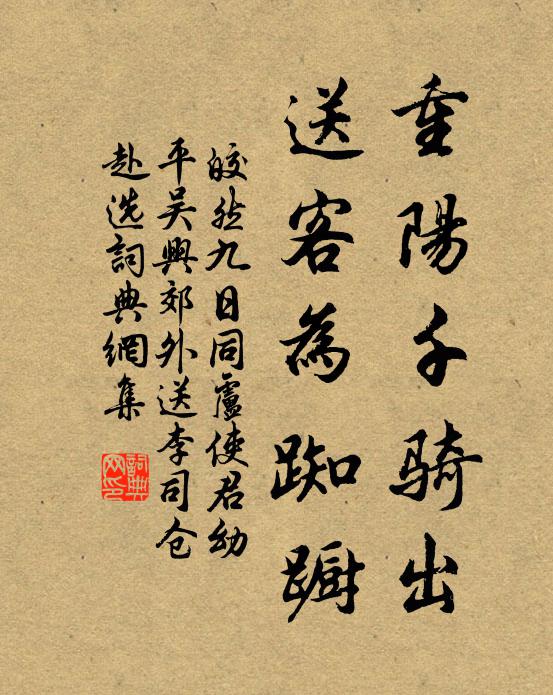 重陽千騎出
送客為踟躕
皎然九日同盧使君幼
平吴興郊外送李司仓
赴选詞典網集
詞典
网印